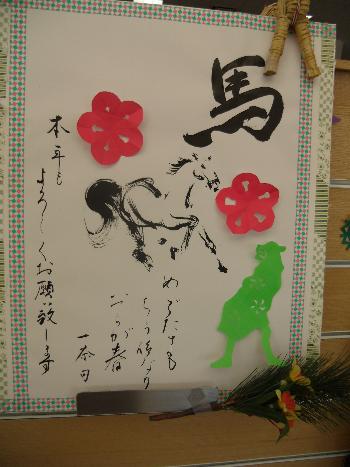 馬
めでたさも
ちう位なり
おらが春
一茶
本年も
よろしくお願い致します